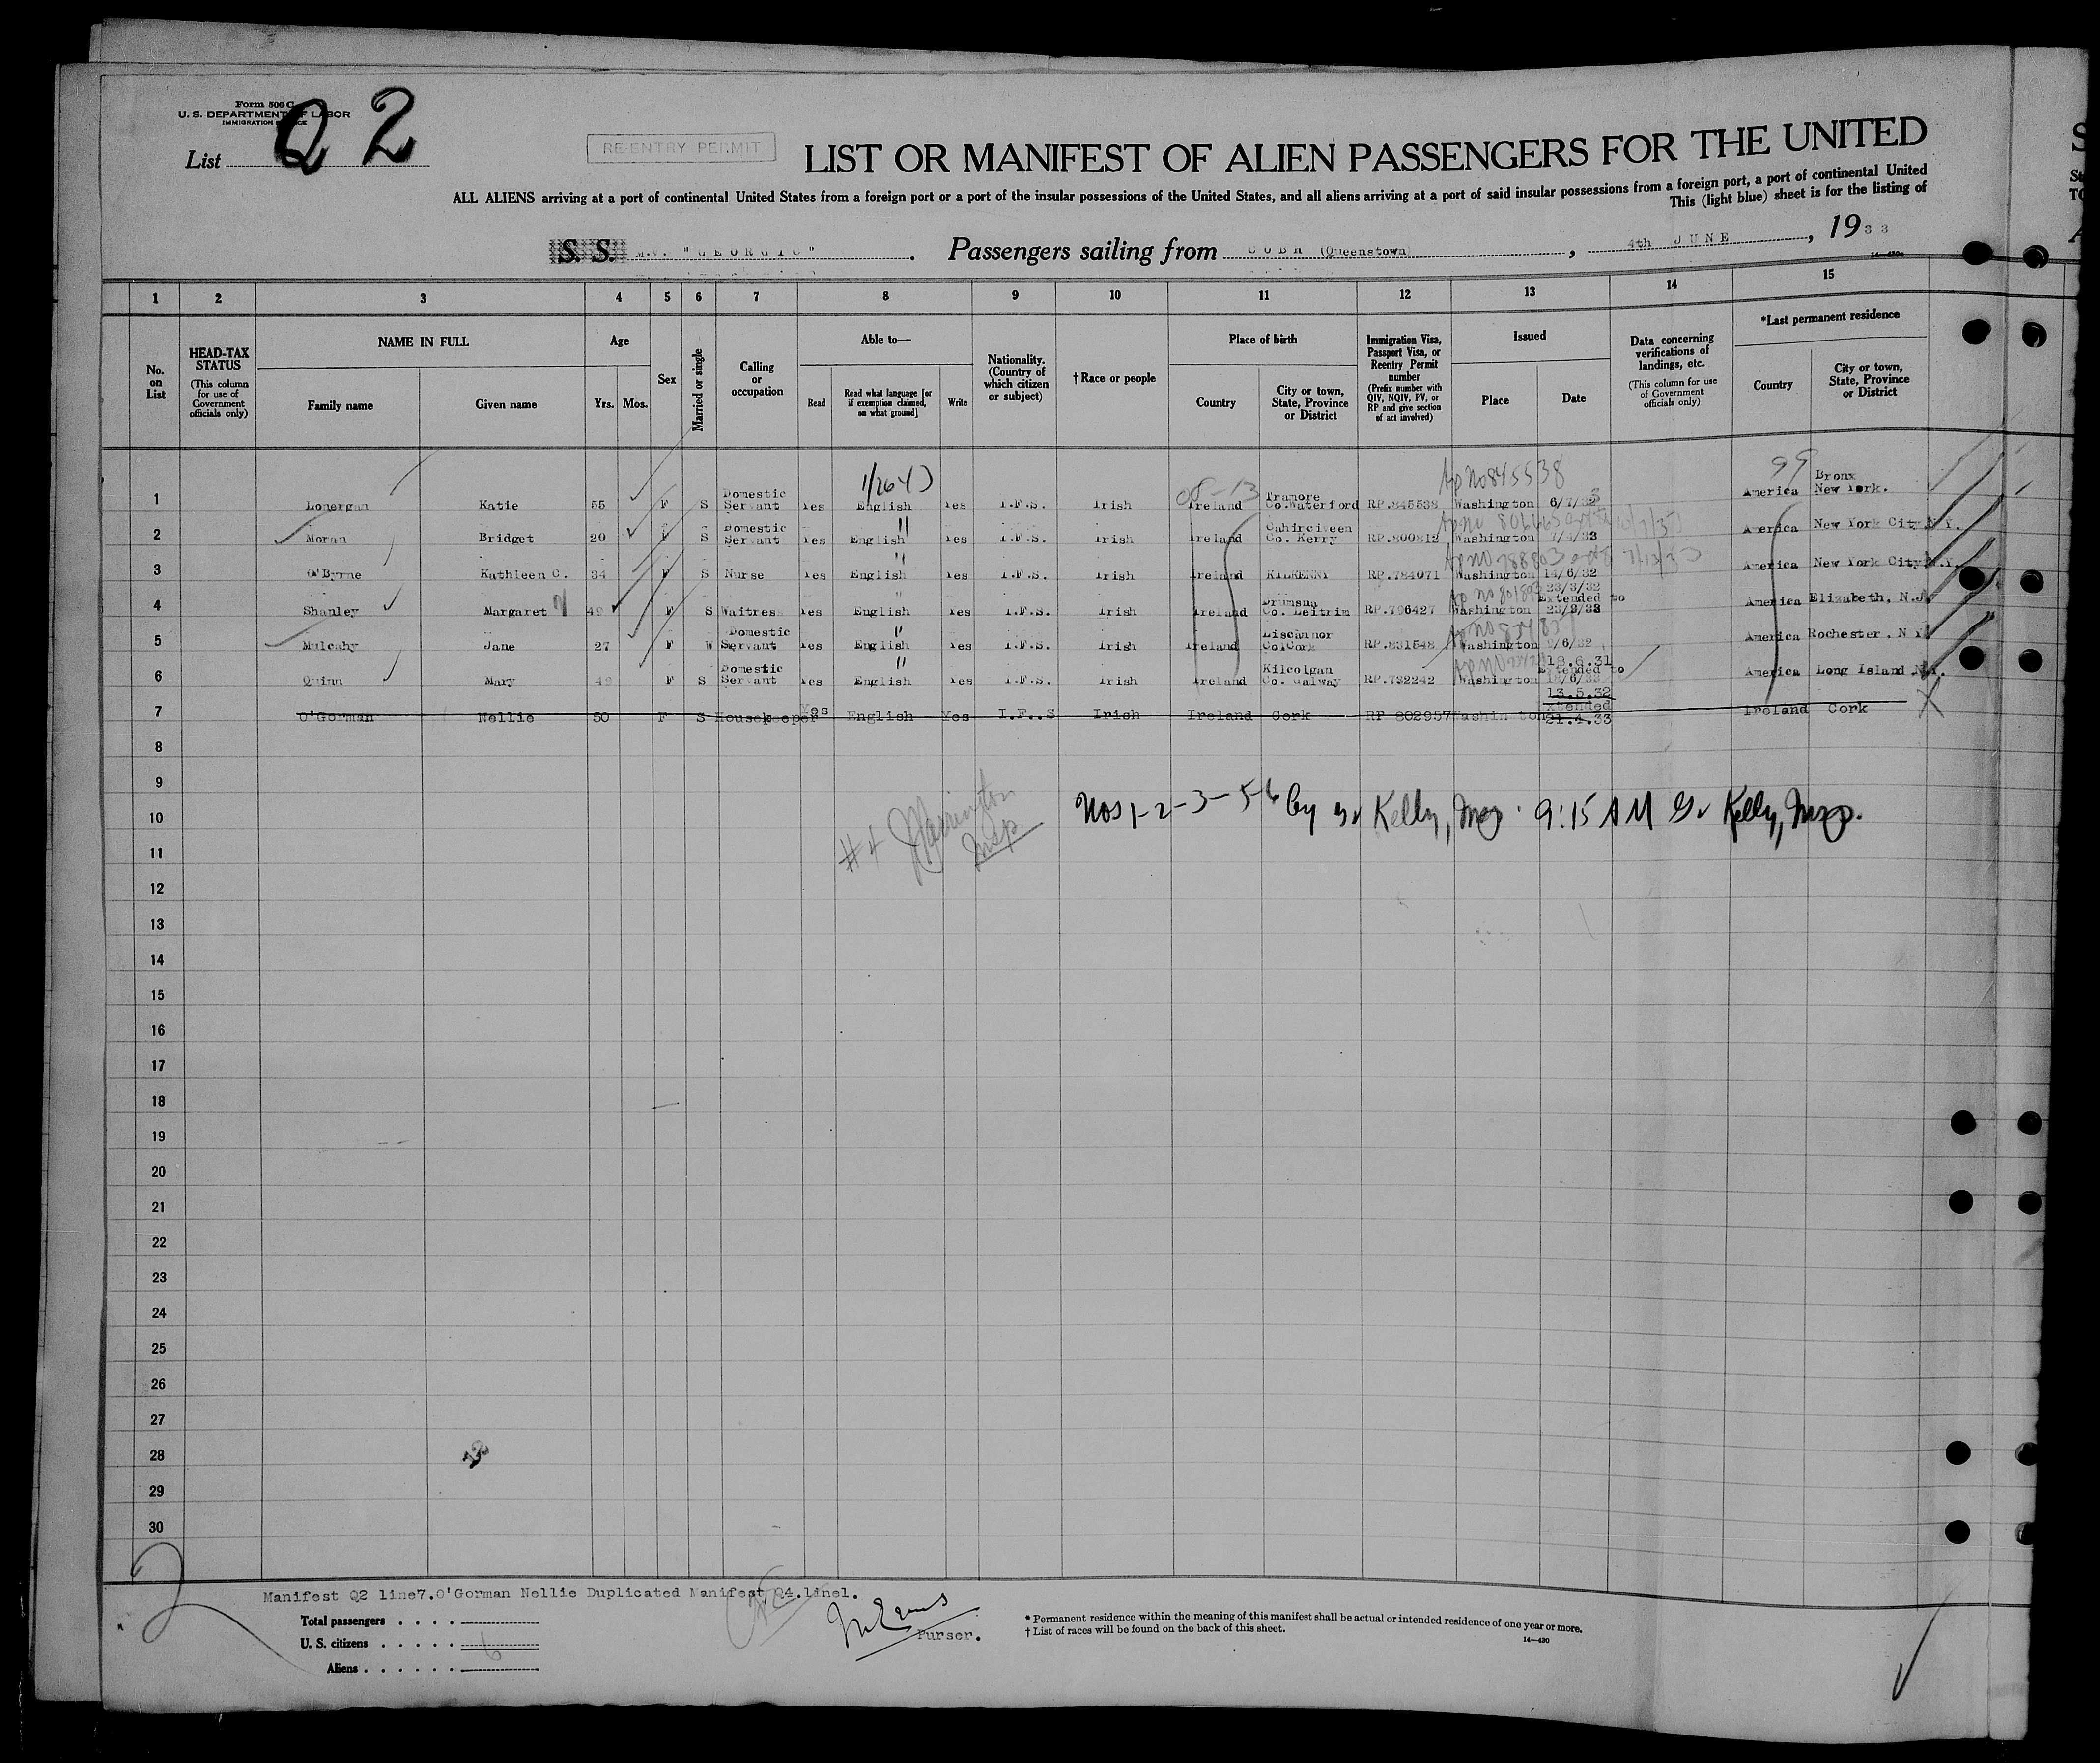 Form 500 C
U. S. DEPARTMENT OF LABOR
IMMIGRATION
List Q 2
RE-ENTRY PERMIT
LIST OR MANIFEST OF ALIEN PASSENGERS FOR THE UNITED
ALL ALIENS arriving at a port of continental United States from a foreign port or a port of the insular possessions of the United States, and all aliens arriving at a port of said insular possessions from a foreign port, a port of continental United
This (light blue) sheet is for the listing of
S. S. M.V. "GEORGIC". Passengers sailing from COBH (Queenstown), 4th JUNE, 1933
14—430
1 2 3 4 5 6 7 8 9 10 11 12 13 14 15
No. on List
HEAD-TAX STATUS (This column for use of Government officials only)
NAME IN FULL
Family name Given name
Age
Yrs. Mos.
Sex
Married or single
Calling or occupation
Able to—
Read Read what language [or if exemption claimed, on what ground] Write
Nationality. (Country of which citizen or subject)
†Race or people
Place of birth
Country City or town, State, Province or District
Immigration Visa, Passport Visa, or Reentry Permit number (Prefix number with QIV, NQIV, PV, or RP and give section of act involved)
Issued
Place Date
Data concerning verifications of landings, etc. (This column for use of Government officials only)
*Last permanent residence
Country City or town, State, Province or District
1 Lonergan Katie 55 F S Domestic Servant Yes English Yes I.F.S. Irish Ireland Tramore Co.Waterford RP.845538 Washington 6/7/32 America Bronx New York.
2 Moran Bridget 20 F S Domestic Servant Yes English Yes I.F.S. Irish Ireland Cahirciveen Co. Kerry RP.800812 Washington 7/4/33 America New York City N.Y.
3 O'Byrne Kathleen C. 34 F S Nurse Yes English Yes I.F.S. Irish Ireland KILKENNY RP.784071 Washington 14/6/32 America New York City N.Y.
4 Shanley Margaret 49 F S Waitress Yes English Yes I.F.S. Irish Ireland Drumsna Co. Leitrim RP.796427 Washington 23/3/32 Extended to 23/9/33 America Elizabeth, N.J.
5 Mulcahy Jane 27 F W Domestic Servant Yes English Yes I.F.S. Irish Ireland Co Cork RP.831548 Washington /6/32 America Rochester. N Y.
6 Quinn Mary 49 F S Domestic Servant Yes English Yes I.F.S. Irish Ireland Kilcolgan Co. Galway RP.732242 Washington 18.6.31 Extended to America Long Island N.Y.
7 O'Gorman Nellie 50 F S Housekeeper Yes English Yes I.F..S Irish Ireland Cork RP 802957 Washington 13.5.32 Extended 21.4.33 Ireland Cork
8
9
10 Nos 1-2-3-5-6 by Kelly, Insp. 9:15 AM Kelly, Insp.
#4 Insp
11
12
13
14
15
16
17
18
19
20
21
22
23
24
25
26
27
28
29
30
Manifest Q2 line7.O'Gorman Nellie Duplicated Manifest Q4.line1.
Total passengers
U. S. citizens 6
Aliens
Purser.
* Permanent residence within the meaning of this manifest shall be actual or intended residence of one year or more.
† List of races will be found on the back of this sheet.
14—430